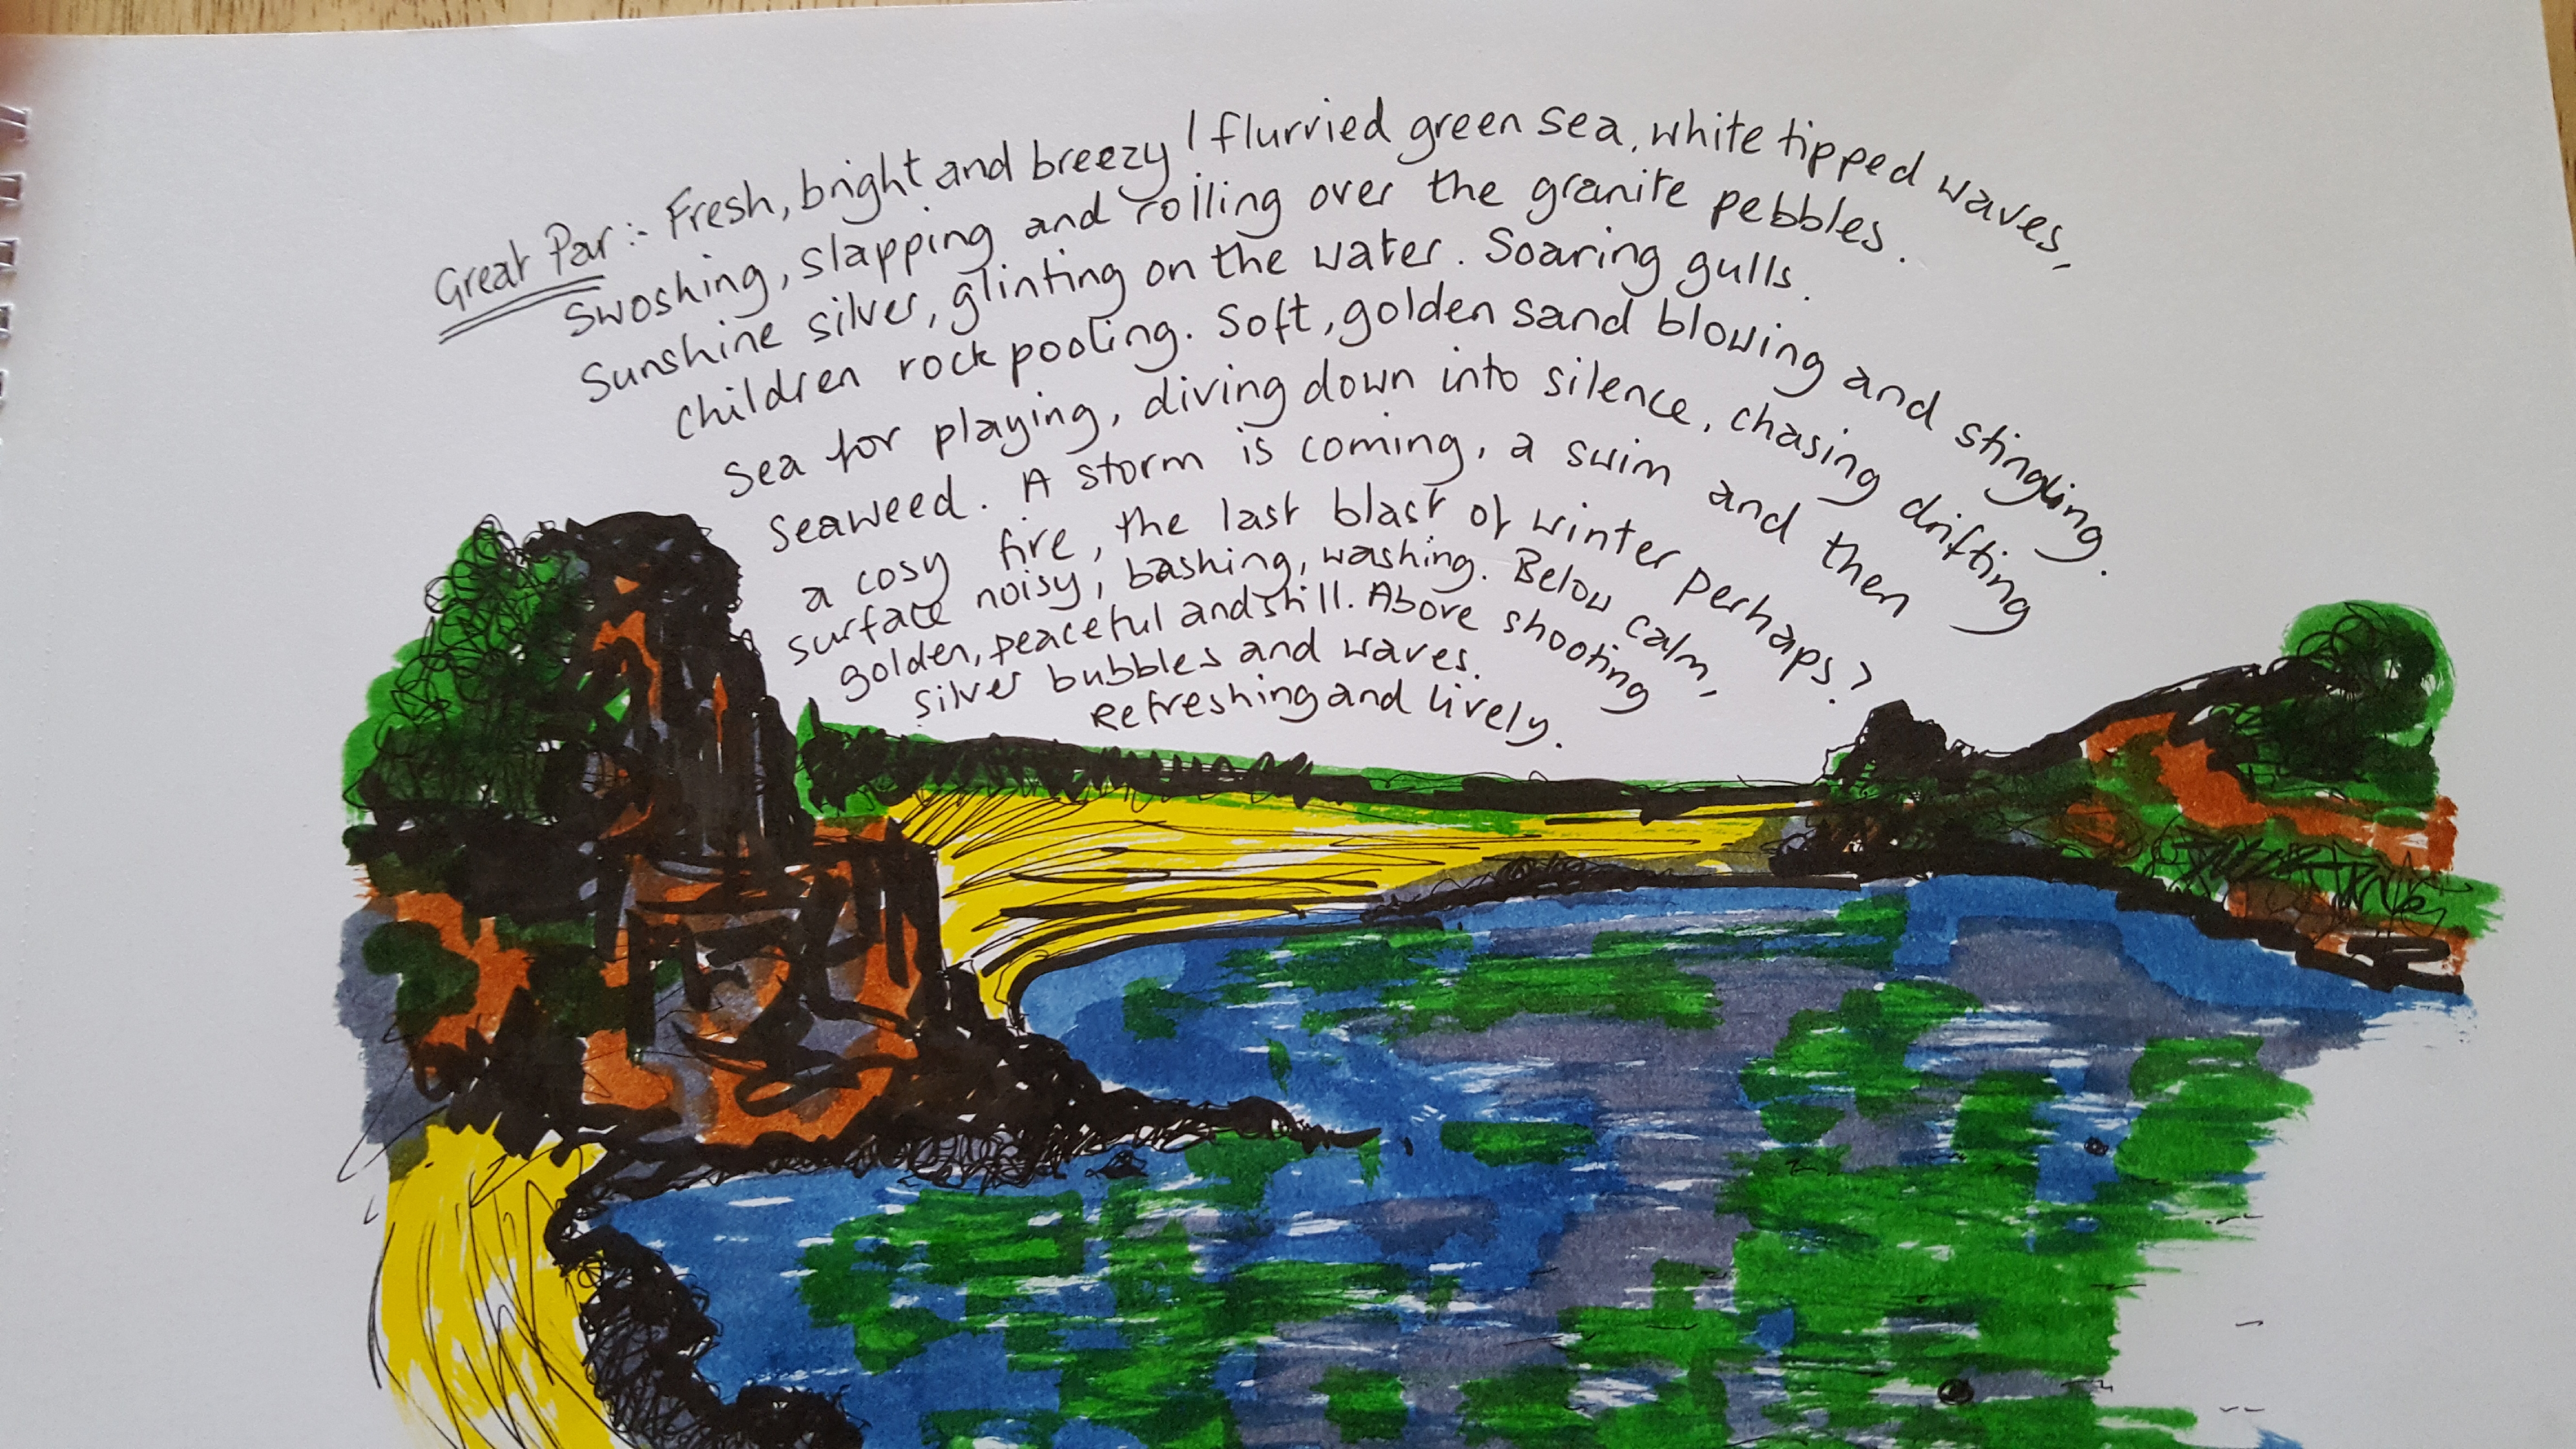 Great Par :- Fresh, bright and breezy / flurried green sea, white tipped waves,
Swoshing, slapping and rolling over the granite pebbles.
Sunshine silver, glinting on the water. Soaring gulls.
children rock pooling. Soft, golden sand blowing and stingling.
Sea for playing, diving down into silence, chasing drifting
seaweed. A storm is coming, a swim and then
a cosy fire, the last blast of winter perhaps?
surface noisy, bashing, washing. Below calm,
golden, peaceful and still. Above shooting
silver bubbles and waves.
Refreshing and lively.